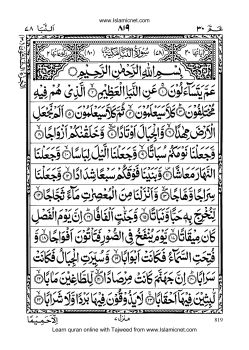 www.Islamicnet.com
النبا ٧٨
٨١٩
عم ٣٠
سورة النبا مكية
بسم الله الرحمن الرحيم
عم يتساءلون عن النبا العظيم الذي هم فيه
مختلفون كلا سيعلمون ثم كلا سيعلمون الم نجعل
الارض مهدا والجبال اوتادا وخلقنكم ازواجا
وجعلنا نومكم سباتا وجعلنا اليل لباسا وجعلنا
النهار معاشا وبنينا فوقكم سبعا شدادا وجعلنا
سراجا وهاجا وانزلنا من المعصرت ماء ثجاجا
لنخرج به حبا ونباتا وجنت الفافا ان يوم الفصل
كان ميقاتا يوم ينفخ في الصور فتاتون افواجا و
فتحت السماء فكانت ابوابا وسيرت الجبال فكانت
سرابا ان جهنم كانت مرصادا للطاغين مابا
لبثين فيها احقابا لا يذوقون فيها بردا ولا شرابا
منزل
819
Learn quran online with Tajweed from www.Islamicnet.com